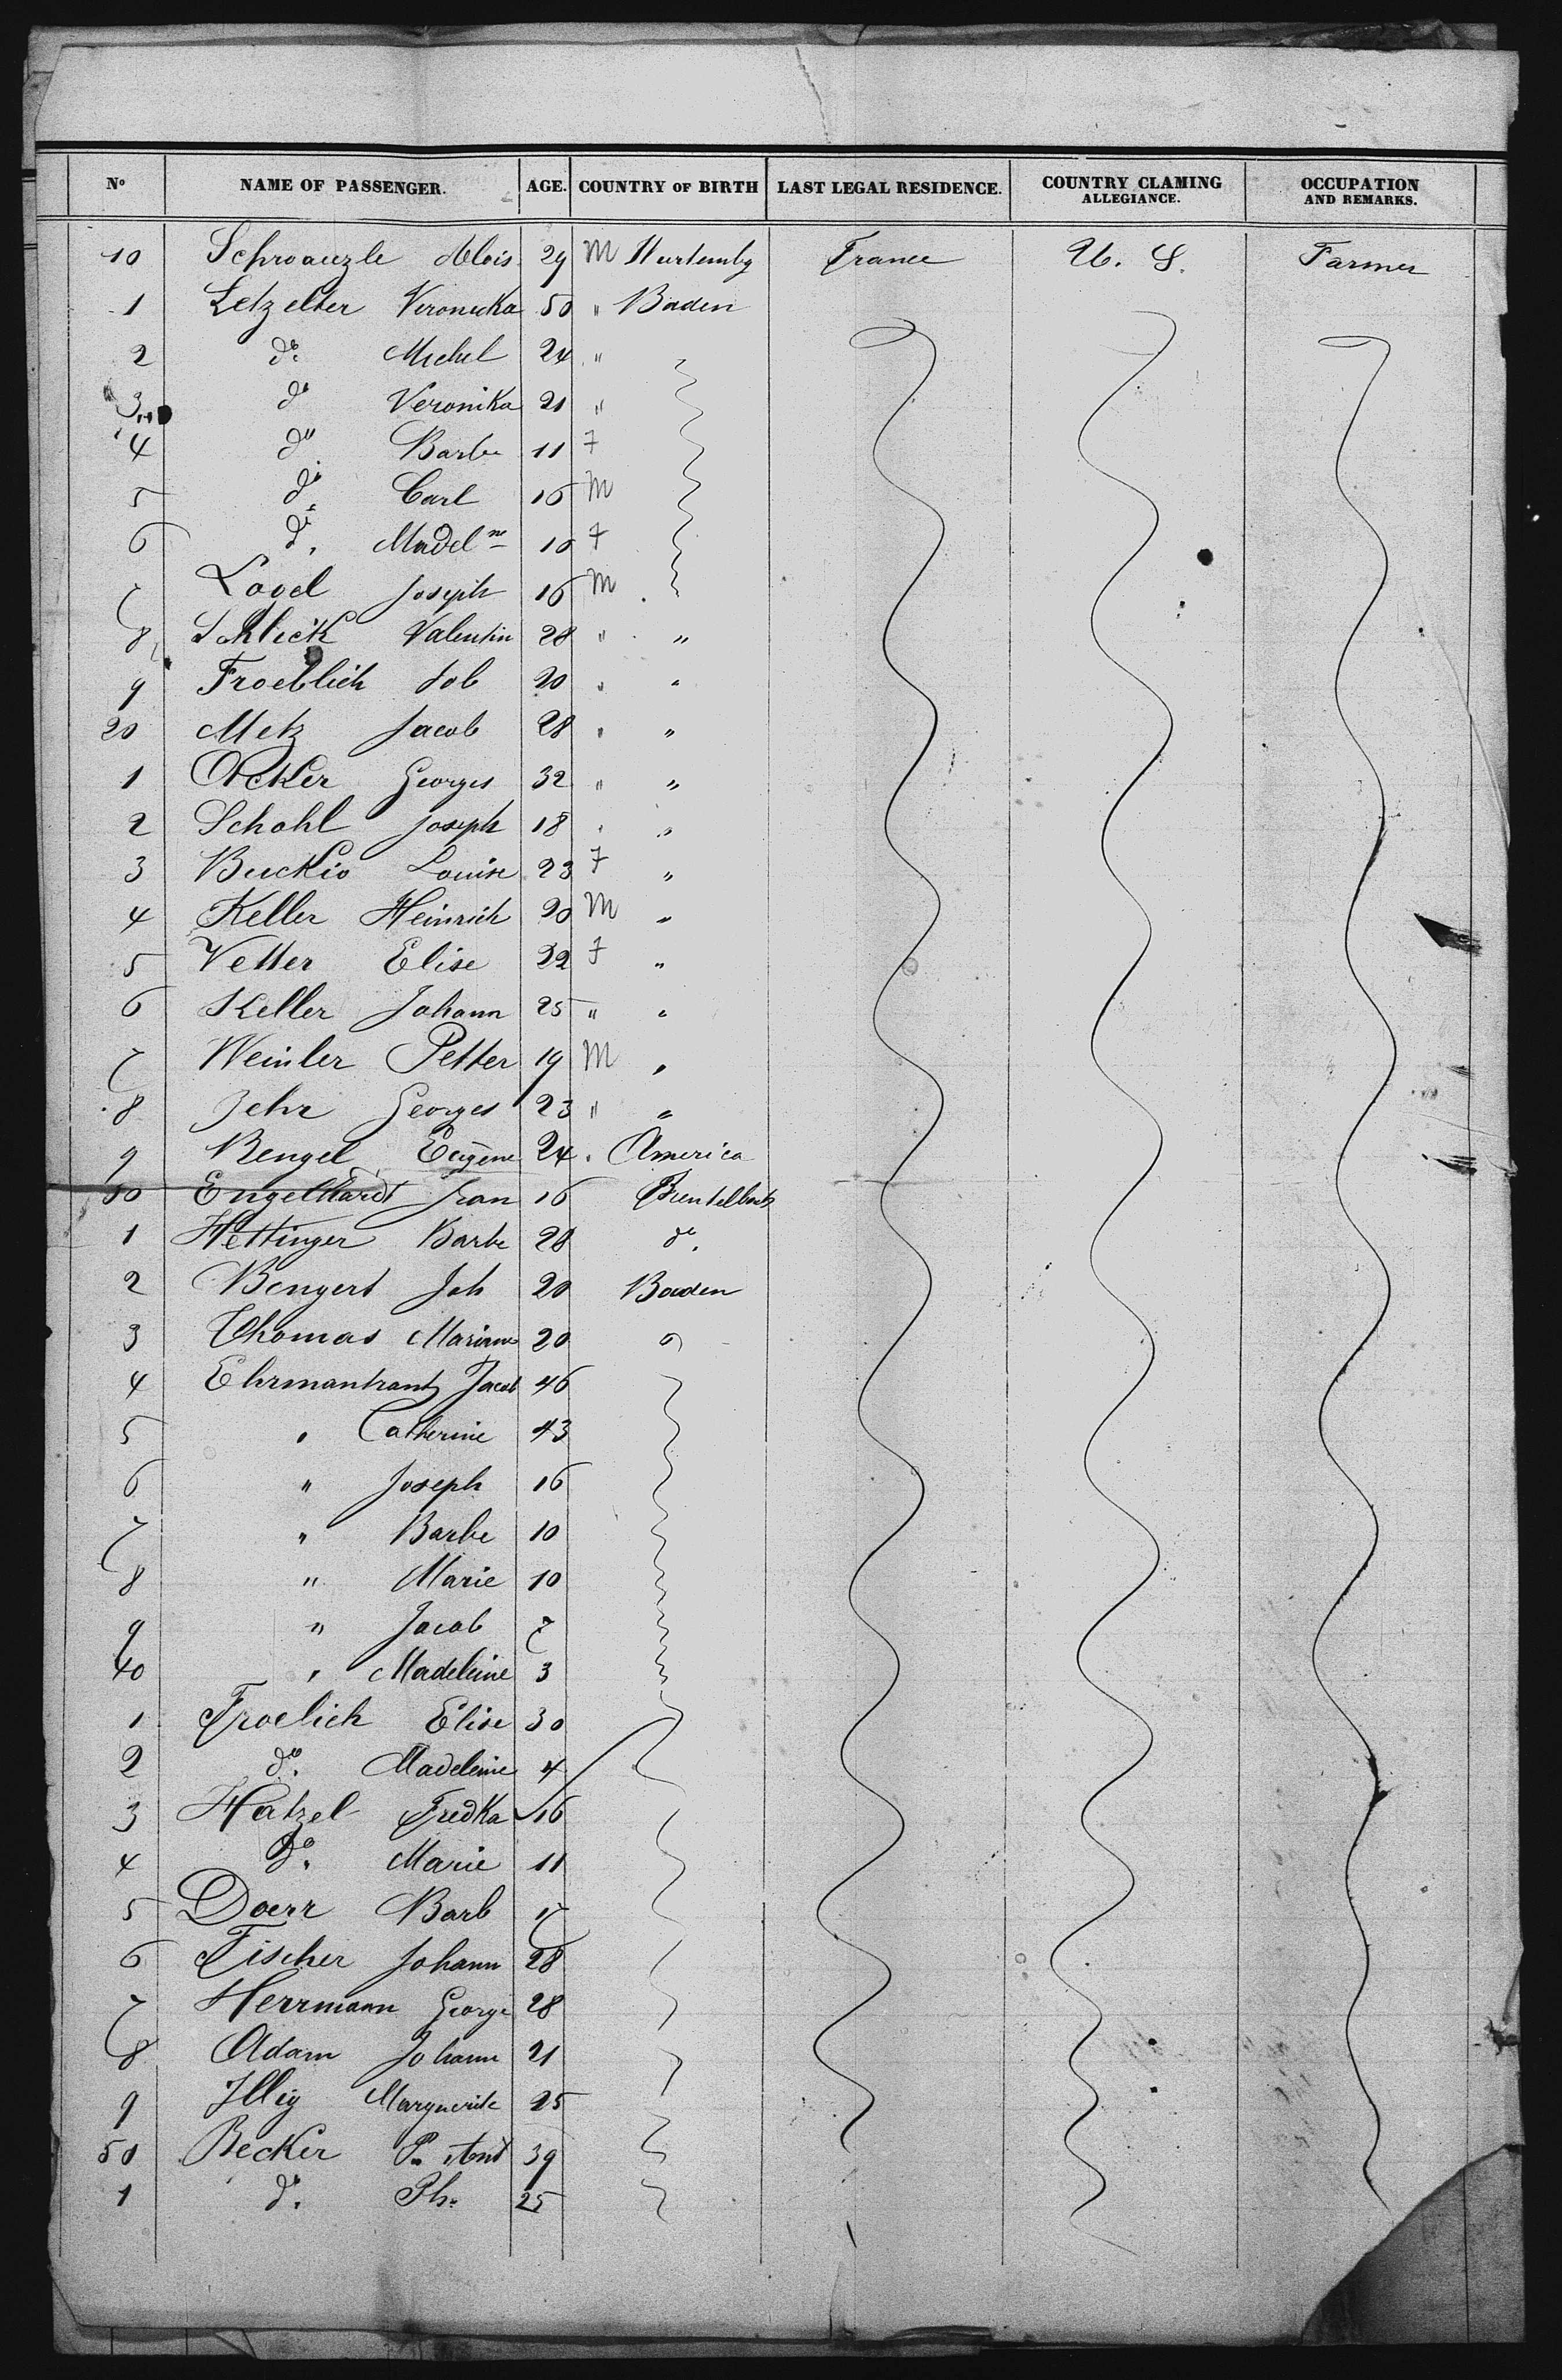 No NAME OF PASSENGER. AGE. COUNTRY OF BIRTH LAST LEGAL RESIDENCE. COUNTRY CLAMING ALLEGIANCE. OCCUPATION AND REMARKS.
10 Schwauzle Alois 29 M Wurtembg France U. S. Farmer
1 Letzelter Veronicka 50 " Baden
2 do Michel 24 "
3 do Veronika 21 "
4 do Barbe 11 F
5 do Carl 16 M
6 do Madelne 10 F
7 Logel Joseph 16 M
8 Schlick Valentin 28 " "
9 Froehlich Job 20 " "
20 Metz Jacob 28 " "
1 Ocker Georges 32 " "
2 Schohl Joseph 18 " "
3 Buckio Louise 23 F "
4 Keller Heinrich 20 M "
5 Vetter Elise 22 F "
6 Keller Johann 25 " "
7 Weinler Petter 19 M "
8 Zehr Georges 23 " "
9 Rengel Eugène 24 " America
30 Engelhardt Jean 16
1 Hettinger Barbe 28 do
2 Bengert Joh 20 Baden
3 Thomas Mariane 20
4 Ehrmantrantz Jacob 46
5 " Catherine 43
6 " Joseph 16
7 " Barbe 10
8 " Marie 10
9 " Jacob 7
40 " Madeleine 3
1 Froelich Elise 30
2 do Madeleine 4
3 Hatzel Fredka 16
4 do Marie 11
5 Doerr Barb 17
6 Fischer Johann 28
7 Herrmann George 28
8 Adam Johann 21
9 Illig Marguerite 25
50 Becker P. Ant 39
1 do Ph. 25